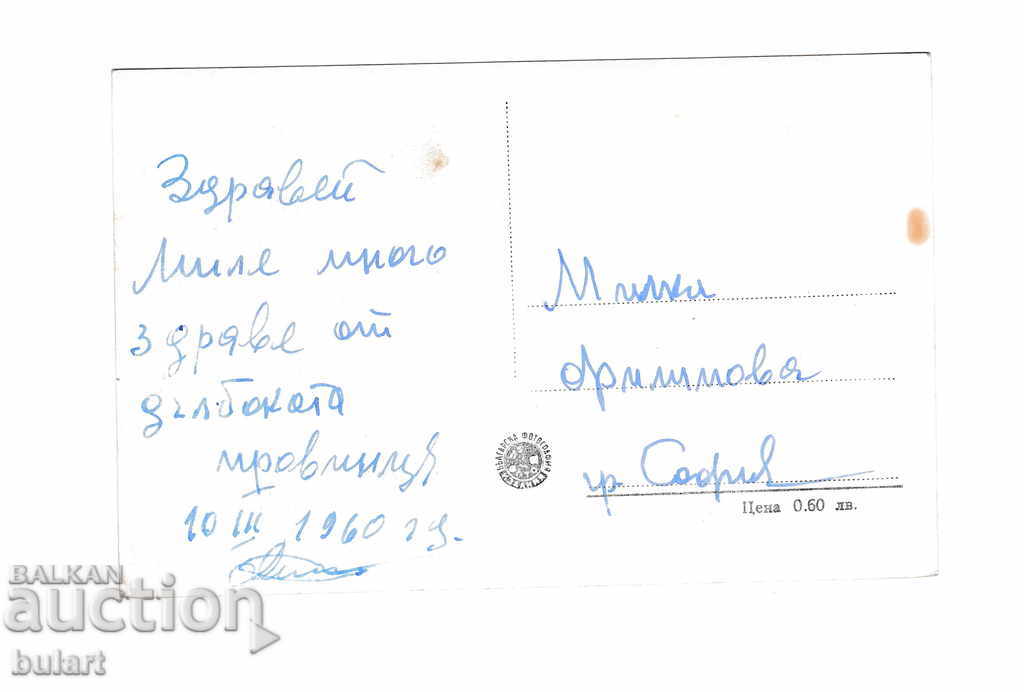 Здравей
Миле много
здраве от
дълбоката
провинция
10 III 1960 г.
Милка
Филипова
гр. София
БЪЛГАРСКА ФОТОГРАФИЯ
Цена 0.60 лв.
BALKAN
auction
bulart